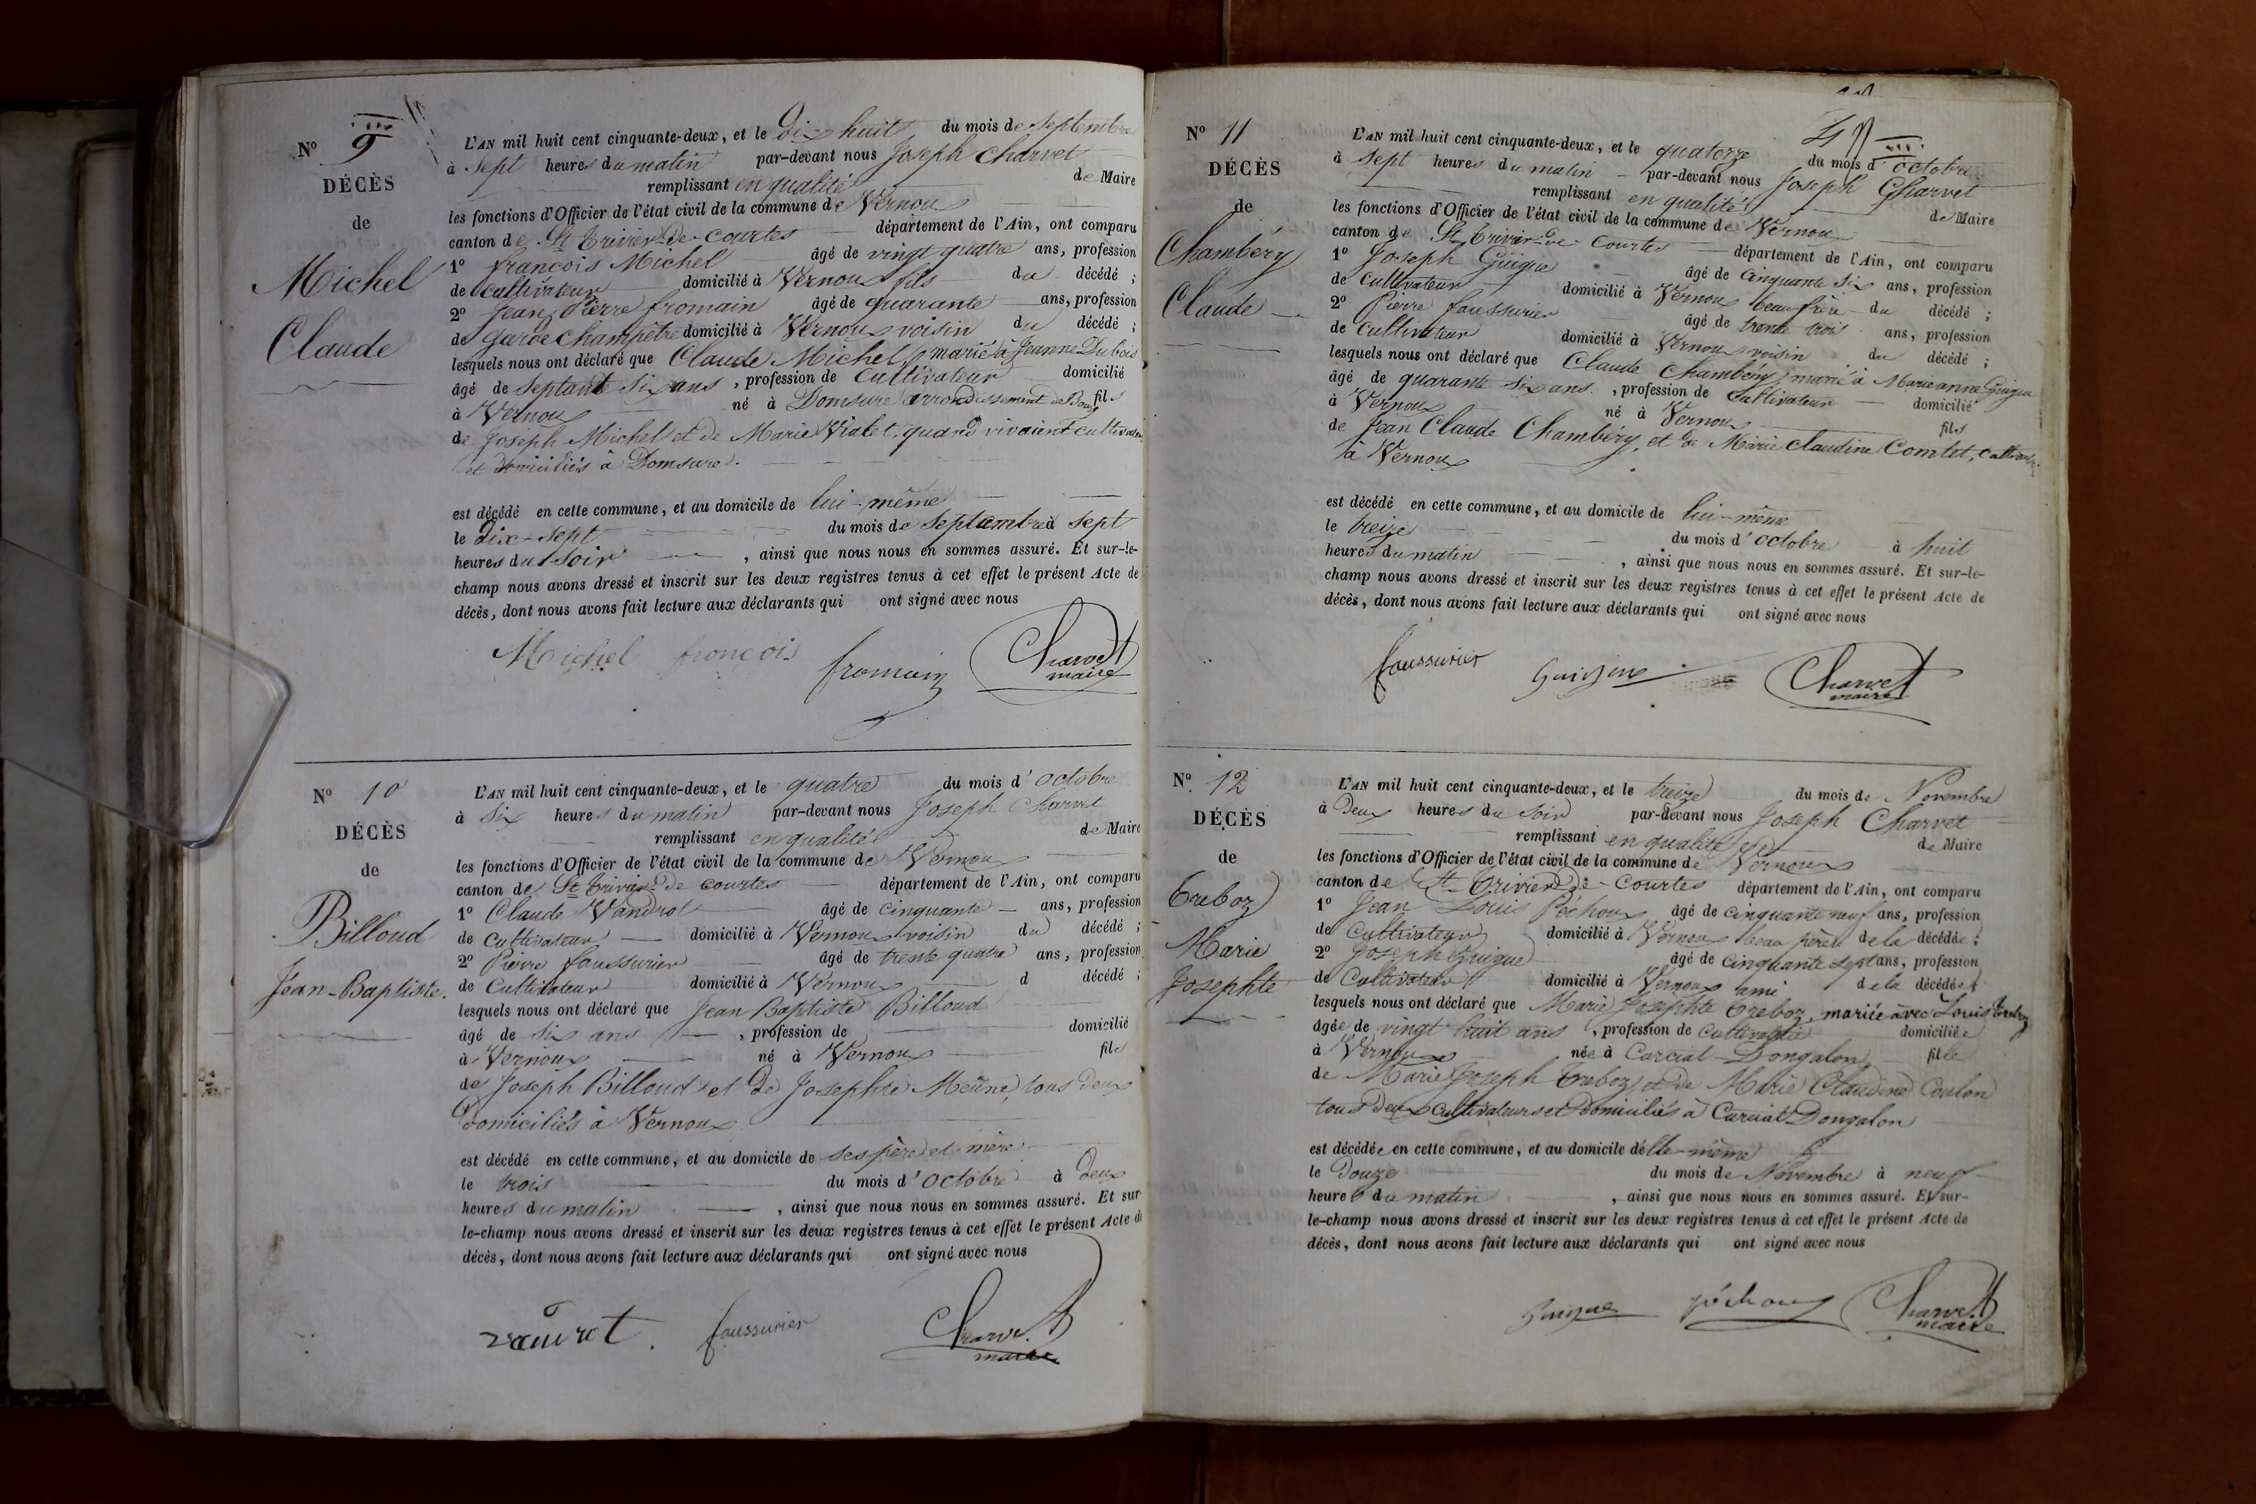 N° 9
DÉCÈS
de
Michel
Claude
L'AN mil huit cent cinquante-deux, et le dix huit du mois de septembre
à sept heures du matin par-devant nous Joseph Charvet
remplissant en qualité de Maire
les fonctions d'Officier de l'état civil de la commune de Vernoux
canton de St Trivier de courtes département de l'Ain, ont comparu
1° françois Michel âgé de vingt quatre ans, profession
de cultivateur domicilié à Vernoux fils du décédé ;
2° Jean Pierre fromain âgé de quarante ans, profession
de garde champêtre domicilié à Vernoux voisin du décédé ;
lesquels nous ont déclaré que Claude Michel, marié à Jeanne Dubois
âgé de septante six ans, profession de cultivateur domicilié
à Vernoux né à Domsure arrondissement de Bourg fils
de Joseph Michel et de Marie Vialet, quand vivaient cultivateurs
et domiciliés à Domsure.
est décédé en cette commune, et au domicile de lui-même
le dix-sept du mois de septembre à sept
heures du soir, ainsi que nous nous en sommes assuré. Et sur-le-
champ nous avons dressé et inscrit sur les deux registres tenus à cet effet le présent Acte de
décès, dont nous avons fait lecture aux déclarants qui ont signé avec nous
Michel françois fromain Charvet
maire
N° 10
DÉCÈS
de
Billoud
Jean-Baptiste.
L'AN mil huit cent cinquante-deux, et le quatre du mois d'octobre
à six heures du matin par-devant nous Joseph Charvet
remplissant en qualité de Maire
les fonctions d'Officier de l'état civil de la commune de Vernoux
canton de St Trivier de courtes département de l'Ain, ont comparu
1° Claude âgé de cinquante ans, profession
de cultivateur domicilié à Vernoux voisin du décédé ;
2° Pierre faussurier âgé de trente quatre ans, profession
de cultivateur domicilié à Vernoux d décédé ;
lesquels nous ont déclaré que Jean Baptiste Billoud
âgé de six ans, profession de domicilié
à Vernoux né à Vernoux fils
de Joseph Billoud et de Josephte tous deux
domiciliés à Vernoux
est décédé en cette commune, et au domicile de ses père et mère
le trois du mois d'octobre à deux
heures du matin, ainsi que nous nous en sommes assuré. Et sur
le-champ nous avons dressé et inscrit sur les deux registres tenus à cet effet le présent Acte de
décès, dont nous avons fait lecture aux déclarants qui ont signé avec nous
faussurier Charvet
maire
N° 11
DÉCÈS
de
Chambéry
Claude
L'AN mil huit cent cinquante-deux, et le quatorze du mois d'octobre
à sept heures du matin par-devant nous Joseph Charvet
remplissant en qualité de Maire
les fonctions d'Officier de l'état civil de la commune de Vernoux
canton de St Trivier de Courtes département de l'Ain, ont comparu
1° Joseph Guigue âgé de cinquante six ans, profession
de cultivateur domicilié à Vernoux beau frère du décédé ;
2° Pierre faussurier âgé de trente trois ans, profession
de cultivateur domicilié à Vernoux voisin du décédé ;
lesquels nous ont déclaré que Claude Chambéry, marié à Marie anne Guigue
âgé de quarante six ans, profession de cultivateur domicilié
à Vernoux né à Vernoux fils
de Jean Claude Chambéry, et de Marie Claudine Comtet,
à Vernoux
est décédé en cette commune, et au domicile de lui-même
le treize du mois d'octobre à huit
heures du matin, ainsi que nous nous en sommes assuré. Et sur-le-
champ nous avons dressé et inscrit sur les deux registres tenus à cet effet le présent Acte de
décès, dont nous avons fait lecture aux déclarants qui ont signé avec nous
faussurier Guigue Charvet
maire
N° 12
DÉCÈS
de
Treboz
Marie
Josephte
L'AN mil huit cent cinquante-deux, et le treize du mois de Novembre
à Deux heures du soir par-devant nous Joseph Charvet
remplissant en qualité de Maire
les fonctions d'Officier de l'état civil de la commune de Vernoux
canton de St Trivier de Courtes département de l'Ain, ont comparu
1° Jean Louis Péchoux âgé de cinquante neuf ans, profession
de cultivateur domicilié à Vernoux beau père de la décédée ;
2° Joseph Guigue âgé de cinquante sept ans, profession
de Cultivateur domicilié à Vernoux ami de la décédée
lesquels nous ont déclaré que Marie Josephte Treboz, mariée avec Louis
âgée de vingt huit ans, profession de cultivatrice domiciliée
à Vernoux née à Curciat-Dongalon fille
de Marie Joseph Treboz et de Marie Claudine Coulon
tous deux cultivateurs et domiciliés à Curciat Dongalon
est décédée en cette commune, et au domicile d'elle-même
le Douze du mois de Novembre à neuf
heures du matin, ainsi que nous nous en sommes assuré. Et sur-
le-champ nous avons dressé et inscrit sur les deux registres tenus à cet effet le présent Acte de
décès, dont nous avons fait lecture aux déclarants qui ont signé avec nous
Guigue péchoux Charvet
maire